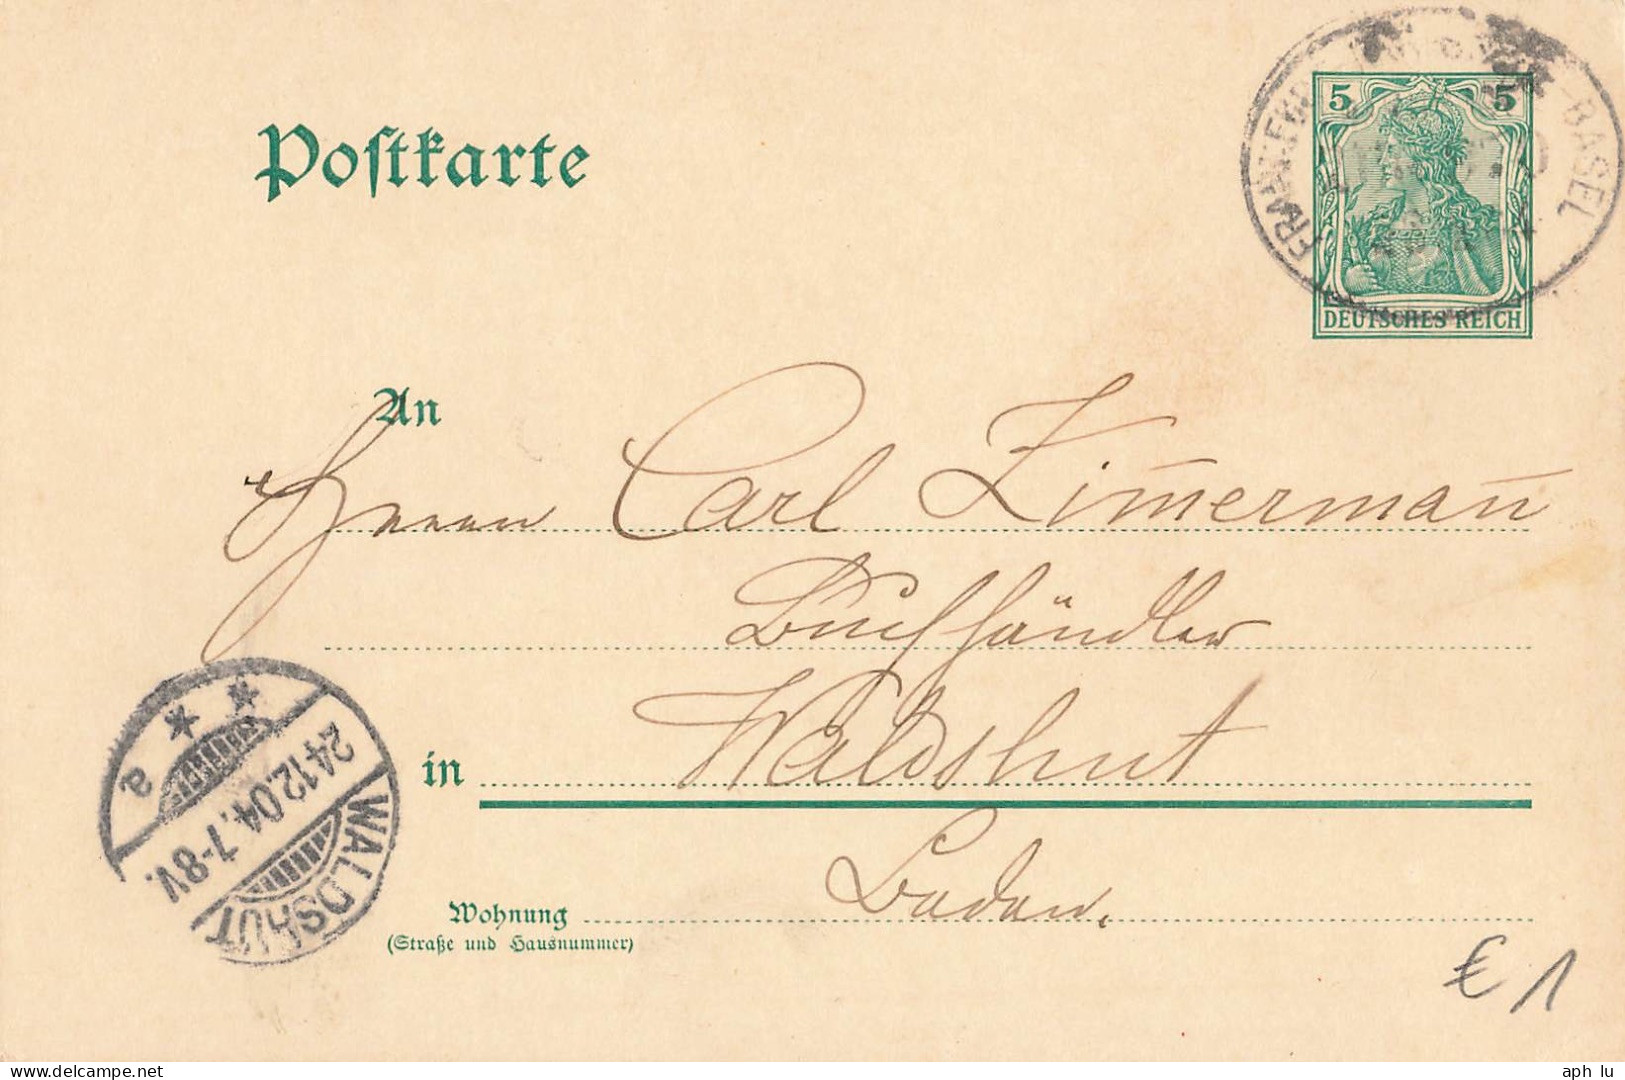 Postkarte
5 5
BASEL
DEUTSCHES REICH
An
Herrn Carl Zim̄erman̄
Buchhändler
in Waldshut
Baden.
Wohnung
(Straße und Hausnummer)
a
24.12.04.7-8V.
WALDSHUT
€ 1
www.delcampe.net
aph_lu